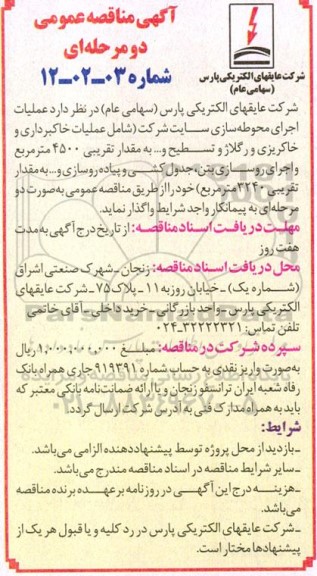 آگهی مناقصه عمومی
دو مرحله‌ای
شماره ۰۳-۰۲-۱۲
شرکت عایقهای الکتریکی پارس
(سهامی عام)
شرکت عایقهای الکتریکی پارس (سهامی عام) در نظر دارد عملیات
اجرای محوطه‌سازی سایت شرکت (شامل عملیات خاکبرداری و
خاکریزی و رگلاژ و تسطیح و... به مقدار تقریبی ۴۵۰۰ مترمربع
و اجرای روسازی بتن، جدول کشی و پیاده‌روسازی و... به مقدار
تقریبی ۳۲۴۰ مترمربع) خود را از طریق مناقصه عمومی به صورت دو
مرحله‌ای به پیمانکار واجد شرایط واگذار نماید.
مهلت دریافت اسناد مناقصه: از تاریخ درج آگهی به مدت
هفت روز
محل دریافت اسناد مناقصه: زنجان - شهرک صنعتی اشراق
(شماره یک) - خیابان روزبه ۱۱ - پلاک ۷۵ - شرکت عایقهای
الکتریکی پارس - واحد بازرگانی - خرید داخلی - آقای خاتمی
تلفن تماس: ۳۲۲۲۲۳۲۱-۰۲۴
سپرده شرکت در مناقصه: مبلغ ۱,۰۰۰,۰۰۰,۰۰۰ ریال
به صورت واریز نقدی به حساب شماره ۹۱۹۳۹۱ جاری همراه بانک
رفاه شعبه ایران ترانسفو زنجان و یا ارائه ضمانت‌نامه بانکی معتبر که
باید به همراه مدارک فنی به آدرس شرکت ارسال گردد.
شرایط:
- بازدید از محل پروژه توسط پیشنهاددهنده الزامی می‌باشد.
- سایر شرایط مناقصه در اسناد مناقصه مندرج می‌باشد.
- هزینه درج این آگهی در روزنامه بر عهده برنده مناقصه
می‌باشد.
- شرکت عایقهای الکتریکی پارس در رد کلیه و یا قبول هر یک از
پیشنهادها مختار است.